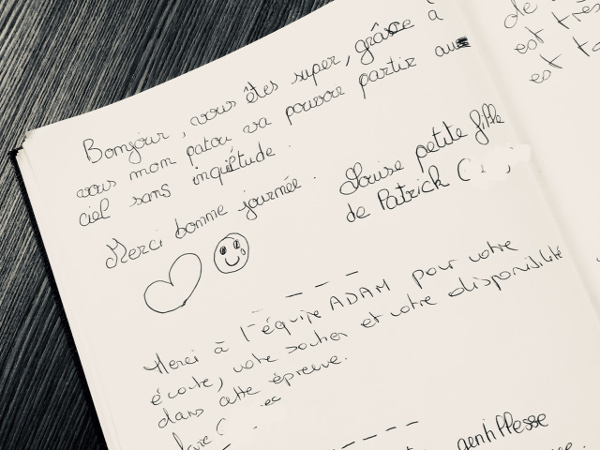 Bonjour, vous êtes super, grâce à
vous mon patou va pouvoir partir au
ciel sans inquiétude.
Merci bonne journée.
Louise petite fille
de Patrick (
Merci à l'équipe ADAM pour votre
écoute, votre soutien et votre disponibilité
dans cette épreuve.
gentillesse
de
est très
est